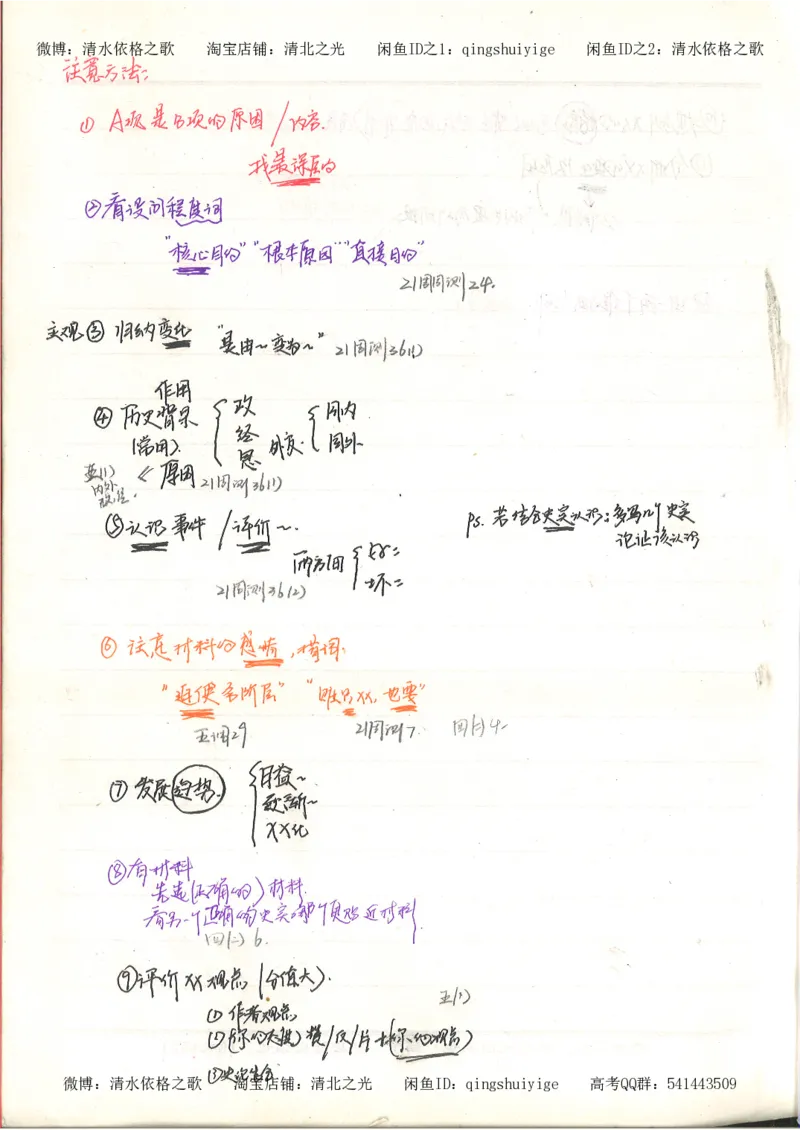 微博：清水依格之歌 淘宝店铺：清北之光 闲鱼ID之1：qingshuiyige 闲鱼ID之2：清水依格之歌
注意方法：
① A项是B项的原因/内容.
找最深层的
②看设问程度词
"核心目的""根本原因""直接目的"
21周周测24.
主观③归纳变化 "是由~变为~" 21周测36(1)
作用
④历史背景 政 国内
(常用). 经 外交. 国外
思
《原因 21周测36(1)
⑤认识事件/评价~.
ps. 若结合史实认识：多写几个史实
论证该认识
两方面 好=
坏=
21周测36(2)
⑥ 注意材料的感情,措词:
"迫使各阶层" "既要xx, 也要"
五调29 21周测7. 四(=)4.
⑦发展趋势. 日益~
逐渐~
XX化
⑧有材料
先选(正确的)材料.
看另一个正确的史实哪个更贴近材料
四(二) 6.
⑨评价XX观点(分值大).
五(1)
①作者观点
②(你的态度)赞/反/片+(你的观点)
③史论结合
微博：清水依格之歌 淘宝店铺：清北之光 闲鱼ID：qingshuiyige 高考QQ群：541443509